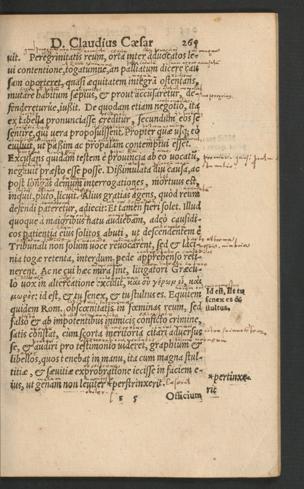 D. Claudius Cæsar 269
uit. Peregrinitatis reum, orta inter aduocatos le-
ui contentione, togatumne, an palliatum dicere cau
sam oporteret, quasi æquitatem integrã ostentans,
mutare habitum sæpius, & prout accusaretur, de-
fendereturue, iussit. De quodam etiam negotio, ita
ex tabella pronunciasse creditur, secundum eos se
sentire, qui vera proposuissent. Propter quæ vsq; eò
euiluit, ut passim ac propalàm contemptui esset.
Excusans quidam testem è prouincia ab eo uocatũ,
negauit præsto esse posse. Dissimulata diu causa, ac
post longas demum interrogationes, mortuus est,
inquit, puto, licuit. Alius gratias agens, quòd reum
defendi pateretur, adiecit: Et tamen fieri solet. Illud
quoque à maioribus natu audiebam, adeò causidi-
cos patientia eius solitos abuti, ut descendentem è
Tribunali non solùm uoce reuocarent, sed & laci-
nia togæ retenta, interdum pede apprehenso reti-
nerent. Ac ne cui hæc mira sint, litigatori Græcu-
lo vox in altercatione excidit, καὶ σὺ γέρων εἶ, καὶ
μωρός: id est, & tu senex, & tu stultus es. Equitem
quidem Rom. obscœnitatis in fœminas reum, sed
falsò & ab impotentibus inimicis conficto crimine,
satis constat, cum scorta meritoria citari aduersus
se, & audiri pro testimonio uideret, graphium &
libellos, quos tenebat in manu, ita cum magna stul-
titiæ, & sæuitiæ exprobratione iecisse in faciem e-
ius, ut genam non leuiter *perstrinxerit.
Id est, Et tu
senex es &
stultus.
*pertinxe-
rit
s 5
Officium